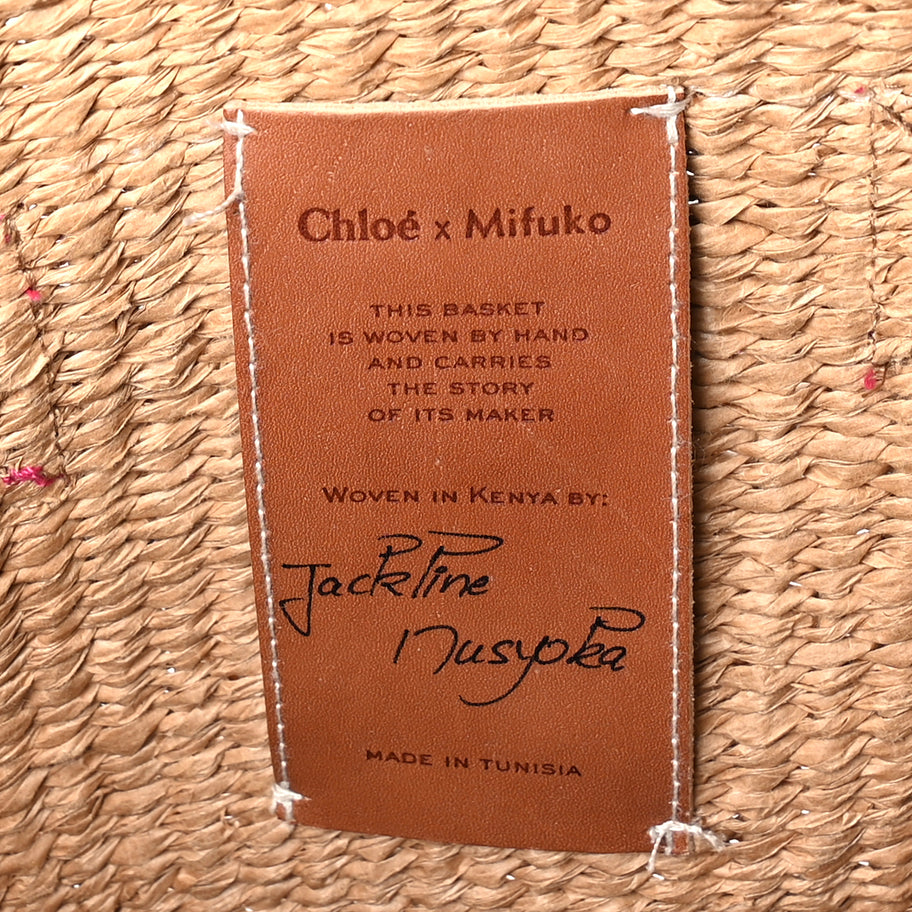 Chloé x Mifuko
THIS BASKET
IS WOVEN BY HAND
AND CARRIES
THE STORY
OF ITS MAKER
WOVEN IN KENYA BY:
Jackline
Musyoka
MADE IN TUNISIA